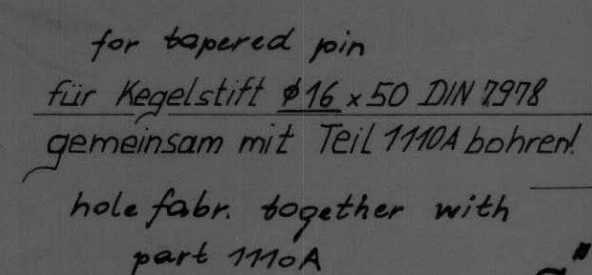 for tapered pin
für Kegelstift ϕ16 x 50 DIN 7978
gemeinsam mit Teil 1110A bohren!
hole fabr. together with
part 1110A